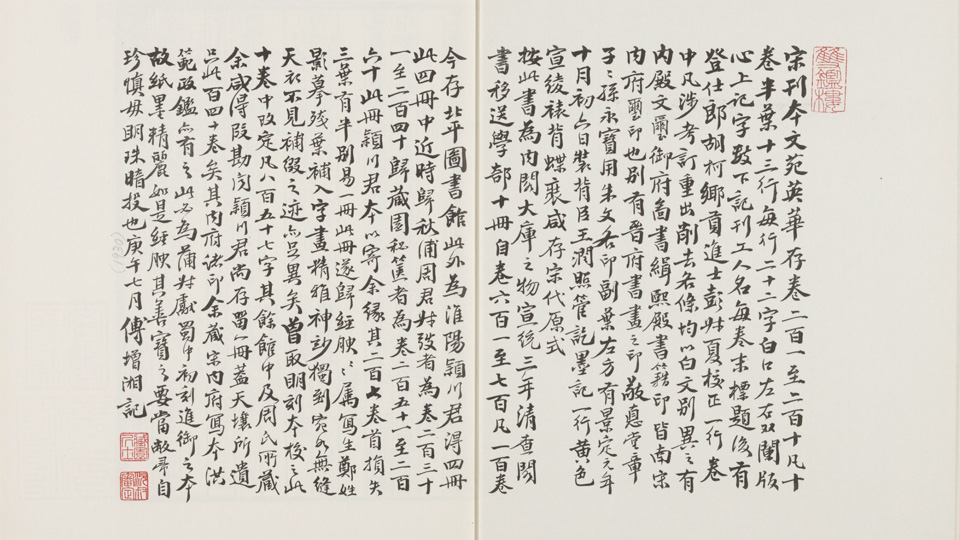 雙鑑樓
宋刊本文苑英華存卷二百一至二百十凡十
卷半葉十三行每行二十二字白口左右雙闌版
心上記字數下記刊工人名每卷末標題後有
登仕郎胡柯鄉貢進士彭叔夏校正一行卷
中凡涉考訂重出削去各條均以白文別異之有
內殿文璽御府圖書緝熙殿書籍印皆南宋
內府璽印也別有晉府書畫之印敬悳堂章
子〻孫永寶用朱文各印副葉左方有景定元年
十月初六日裝背臣王潤照管訖墨記一行黃色
宣綾裱背蝶裝咸存宋代原式
按此書為內閣大庫之物宣統三年清查閣
書移送學部十冊自卷六百一至七百凡一百卷
今存北平圖書館此外為淮陽潁川君得四冊
此四冊中近時歸秋浦周君叔弢者為卷二百三十
一至二百四十歸藏園秘篋者為卷二百五十一至二百
六十此冊潁川君本以寄余緣其二百七卷首損失
三葉有半別易一冊此冊遂歸經腴〻屬寫生鄭姓
影摹殘葉補入字畫精雅神妙獨到宛如無縫
天衣不見補綴之迹亦足異矣曾取明刻本校之此
十卷中改定凡八百五十七字其餘館中及周氏所藏
余咸得假勘聞潁川君尚存蜀一冊蓋天壤所遺
只此百四十卷矣其內府諸印余藏宋內府寫本洪
範政鑑亦有之此書為蒲叔獻蜀中初刻進御之本
故紙墨精麗如是經腴其善寶之要當敝帚自
珍慎毋明珠暗投也庚午七月傅增湘記
(1930)